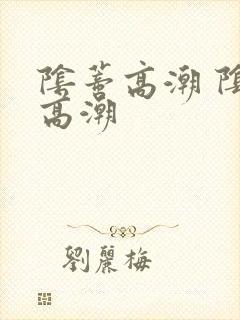 陰蒂高潮 陰
高潮
劉麗梅